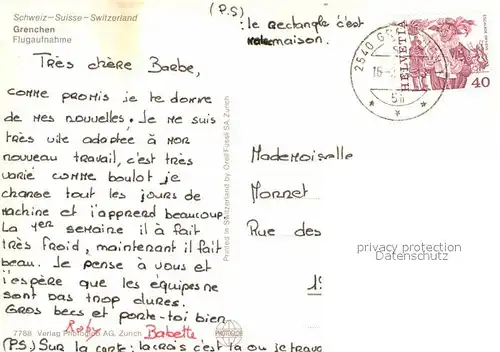 Schweiz-Suisse-Switzerland
Grenchen
Flugaufnahme
(P.S)
: le rectangle c'est
maison.
2540 GRENCHEN 1
HELVETIA
40
Très chère Barbe,
comme promis je te donne
de mes nouvelles. Je me suis
très vite adaptée à mon
nouveau travail, c'est très
varié comme boulot je
change tout les jours de
machine et j'apprend beaucoup.
La 1er semaine il à fait
très froid, maintenant il fait
beau. Je pense à vous et
j'espère que les équipes ne
sont pas trop dures.
Gros becs et porte-toi bien
Roby Babette
Mademoiselle
Monnet
Rue des
privacy protection
Datenschutz
Printed in Switzerland by Orell Füssli SA Zurich
7788 Verlag Photoglob AG, Zürich
PHOTOGLOB
(P.S.) Sur la carte: la croix c'est là ou je trava